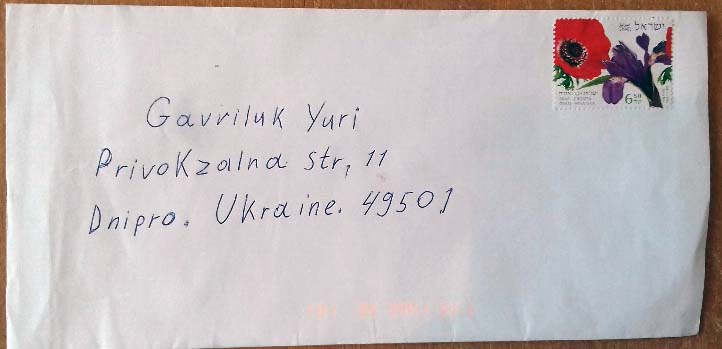 ישראל
6.50
Gavriluk Yuri
Privokzalna str, 11
Dnipro. Ukraine. 49501